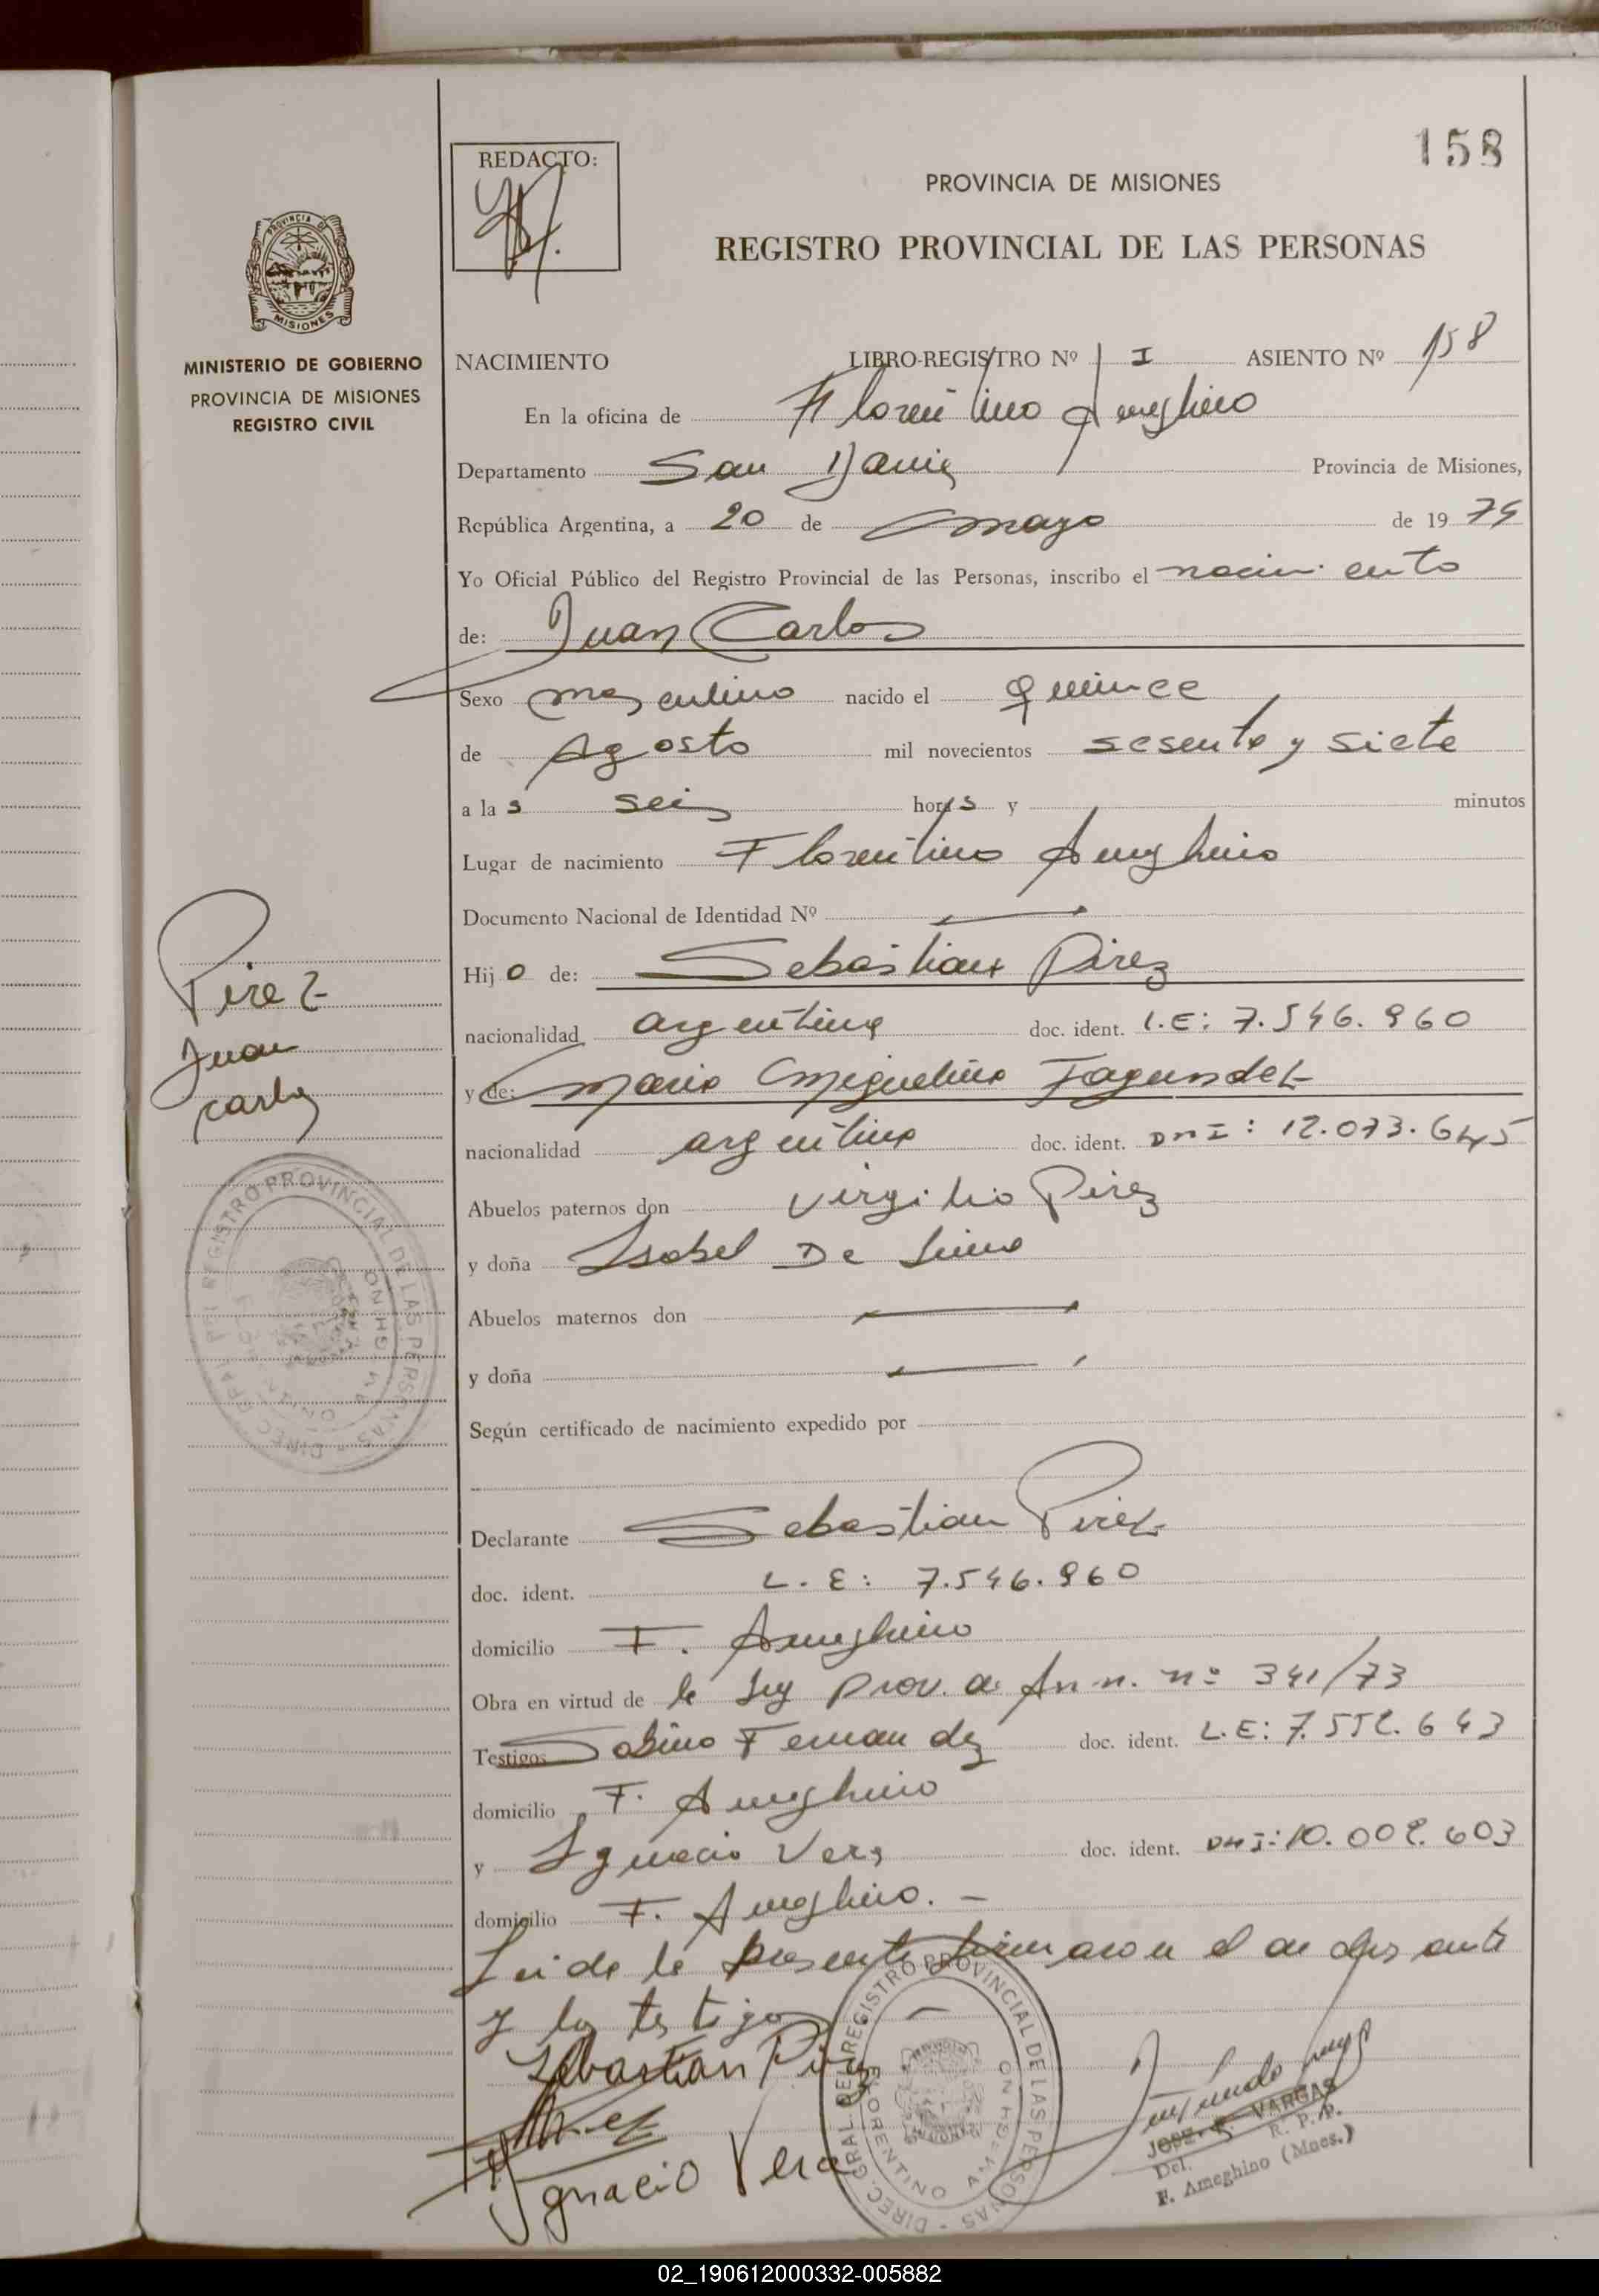 158
REDACTO:
PROVINCIA DE MISIONES
REGISTRO PROVINCIAL DE LAS PERSONAS
PROVINCIA DE
MISIONES
MINISTERIO DE GOBIERNO
PROVINCIA DE MISIONES
REGISTRO CIVIL
NACIMIENTO LIBRO-REGISTRO Nº I ASIENTO Nº 158
En la oficina de Florentino Ameghino
Departamento San Javier Provincia de Misiones,
República Argentina, a 20 de mayo de 1975
Yo Oficial Público del Registro Provincial de las Personas, inscribo el nacimiento
de: Juan Carlos
Sexo masculino nacido el quince
de Agosto mil novecientos sesenta y siete
a las seis horas y minutos
Lugar de nacimiento Florentino Ameghino
Documento Nacional de Identidad Nº
Hijo de: Sebastian Pirez
nacionalidad argentina doc. ident. L.E: 7.546.960
y de: Maria Miguelina Fagundez
nacionalidad argentina doc. ident. DNI: 12.073.645
Abuelos paternos don Virgilio Pirez
y doña Isabel De Lima
Abuelos maternos don
y doña
Según certificado de nacimiento expedido por
Declarante Sebastian Pirez
doc. ident. L.E: 7.546.960
domicilio F. Ameghino
Obra en virtud de la Ley Prov. de Ann. nº 341/73
Testigos Sabino Fernandez doc. ident. L.E: 7.552.643
domicilio F. Ameghino
y Ignacio Vera doc. ident. DNI: 10.002.603
domicilio F. Ameghino. -
Leida la presente firmaron el declarante
y los testigos
Sebastian Pirez
Ignacio Vera
Pirez
Juan
Carlos
REGISTRO PROVINCIAL DE LAS PERSONAS
DIREC. GRAL. DEL REGISTRO PROVINCIAL DE LAS PERSONAS
FLORENTINO AMEGHINO
JOSE VARGAS
Del. R. P. P.
F. Ameghino (Mnes.)
02_190612000332-005882